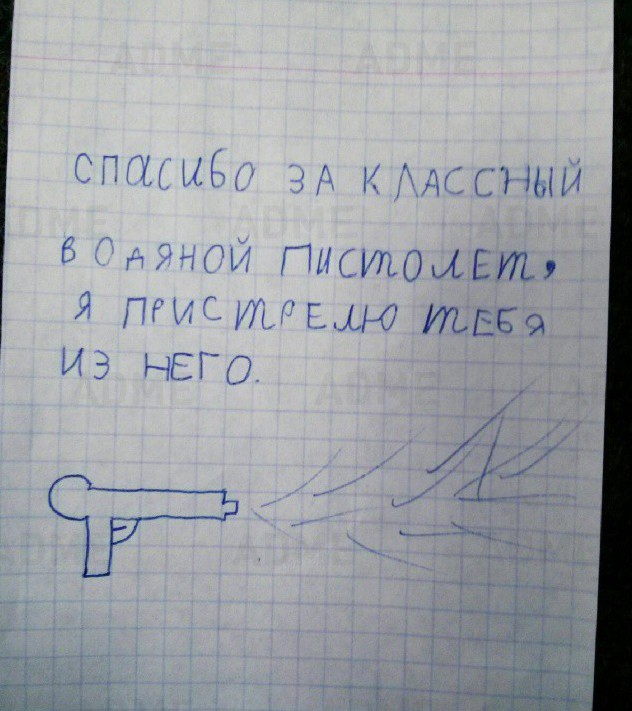 СПАСИБО ЗА КЛАССНЫЙ
ВОДЯНОЙ ПИСТОЛЕТ,
Я ПРИСТРЕЛЮ ТЕБЯ
ИЗ НЕГО.